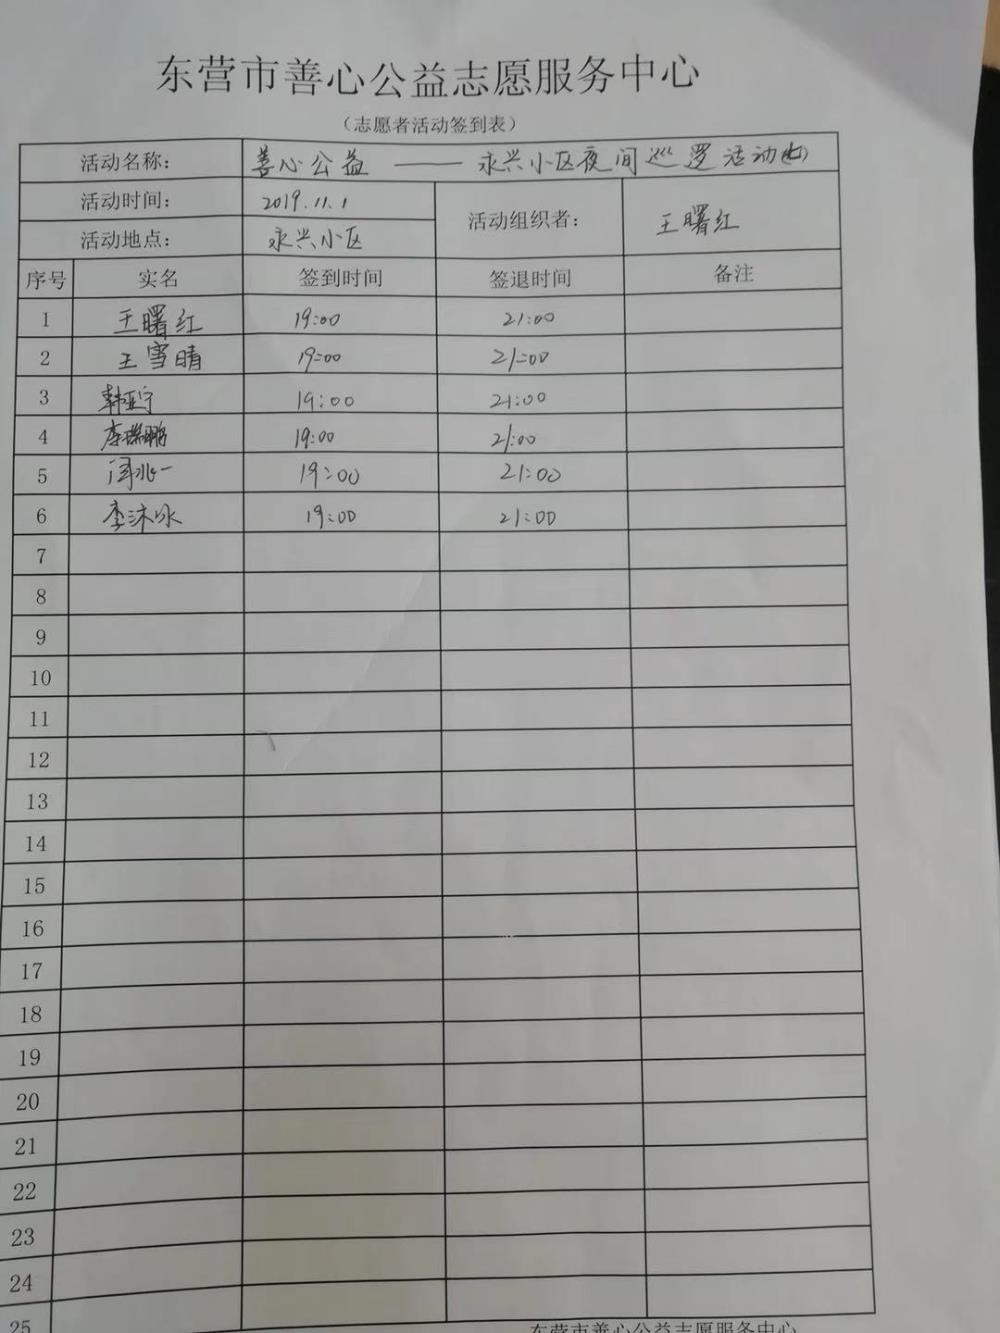 东营市善心公益志愿服务中心
（志愿者活动签到表）
活动名称： 善心公益 —— 永兴小区夜间巡逻活动
活动时间： 2019.11.1 活动组织者： 王曙红
活动地点： 永兴小区
序号 实名 签到时间 签退时间 备注
1 王曙红 19:00 21:00
2 王雪晴 19:00 21:00
3 韩亚宁 19:00 21:00
4 李 鹏 19:00 21:00
5 闫兆一 19:00 21:00
6 李沐冰 19:00 21:00
7
8
9
10
11
12
13
14
15
16
17
18
19
20
21
22
23
24
25
东营市善心公益志愿服务中心